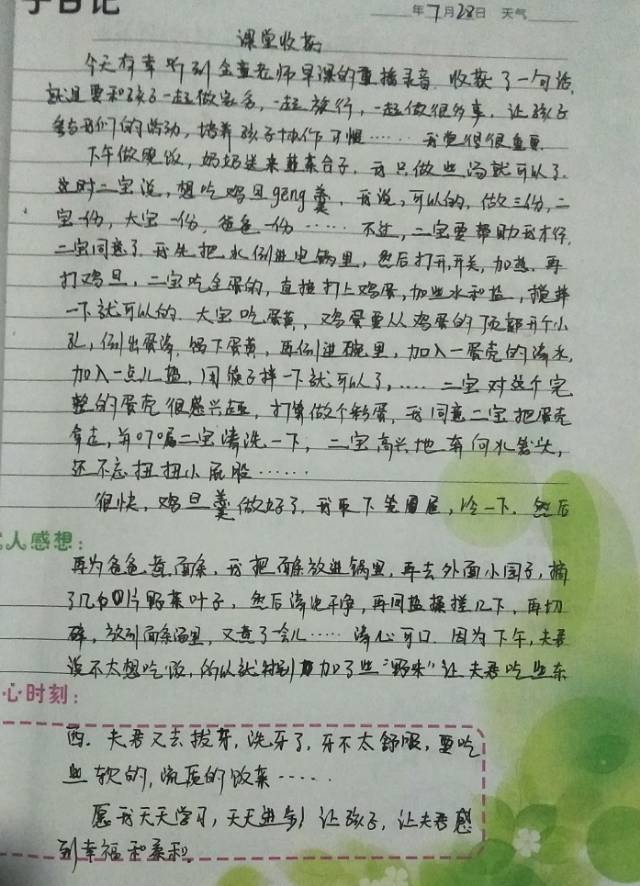 子日记
年7月28日 天气
课堂收获
今天有幸听到金童老师早课的重播录音 收获了一句话,
就是要和孩子一起做家务,一起旅行,一起做很多事,让孩子
参与我们的活动,培养孩子协作习惯……我觉得很重要.
下午做晚饭,奶奶送来韭菜合子,我只做些汤就可以了.
这时二宝说,想吃鸡旦gēng羹,我说,可以的,做三份,二
宝一份,大宝一份,爸爸一份……不过,二宝要帮助我才行,
二宝同意了.我先把水倒进电锅里,然后打开开关,加热.再
打鸡旦,二宝吃全蛋的,直接打上鸡蛋,加些水和盐,搅拌
一下就可以的.大宝吃蛋黄,鸡蛋要从鸡蛋的顶部开个小
孔,倒出蛋清,留下蛋黄,再倒进碗里,加入一蛋壳的清水,
加入一点儿盐,用筷子拌一下就可以了,……二宝对这个完
整的蛋壳很感兴趣,打算做个彩蛋,我同意二宝把蛋壳
拿走,并叮嘱二宝清洗一下,二宝高兴地奔向水笼头,
还不忘扭扭小屁股……
很快,鸡旦羹做好了.我取下笼屉,冷一下.然后
人感想:
再为爸爸煮面条,我把面条放进锅里,再去外面小园子,摘
了几片野菜叶子,然后清洗干净,再用盐搓搓几下,再切
碎,放到面条锅里,又煮了会儿……清心可口.因为下午,夫君
说不太想吃饭,所以就特别加了些“野味”让夫君吃些东
心时刻:
西.夫君又去拔牙,洗牙了,牙不太舒服,要吃
些软的,流质的饭菜……
愿我天天学习,天天进步!让孩子,让夫君感
到幸福和柔和.